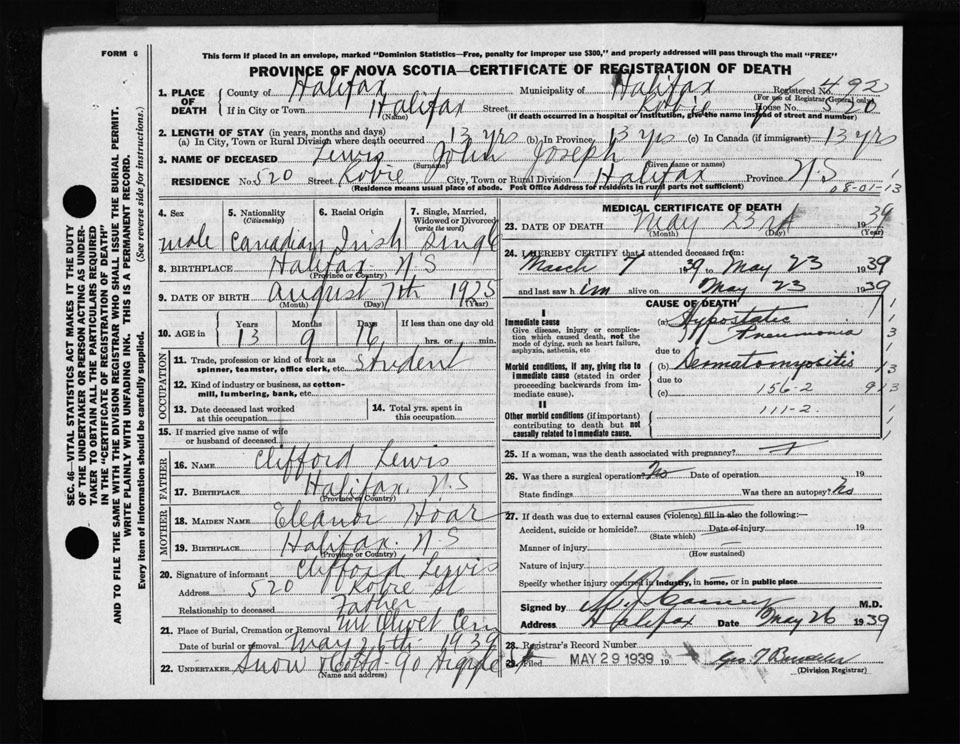 FORM 6
This form if placed in an envelope, marked "Dominion Statistics—Free, penalty for improper use $300," and properly addressed will pass through the mail "FREE"
PROVINCE OF NOVA SCOTIA—CERTIFICATE OF REGISTRATION OF DEATH
1. PLACE OF DEATH County of Halifax Municipality of Halifax Registered No. 492
(For use of Registrar General only)
If in City or Town Halifax Street Robie House No. 520
(Name) (If death occurred in a hospital or institution, give the name instead of street and number)
2. LENGTH OF STAY (in years, months and days)
(a) In City, Town or Rural Division where death occurred 13 yrs (b) In Province 13 yrs (c) In Canada (if immigrant) 13 yrs
3. NAME OF DECEASED Lewis John Joseph
(Surname) (Given name or names)
RESIDENCE No. 520 Street Robie City, Town or Rural Division Halifax Province N.S
(Residence means usual place of abode. Post Office Address for residents in rural parts not sufficient)
08-01-13
4. Sex male
5. Nationality (Citizenship) Canadian
6. Racial Origin Irish
7. Single, Married, Widowed or Divorced (write the word) Single
8. BIRTHPLACE Halifax N.S
(Province or Country)
9. DATE OF BIRTH August 7th 1925
(Month) (Day) (Year)
10. AGE in Years 13 Months 9 Days 16 If less than one day old hrs. or min.
OCCUPATION
11. Trade, profession or kind of work as spinner, teamster, office clerk, etc. Student
12. Kind of industry or business, as cotton-mill, lumbering, bank, etc.
13. Date deceased last worked at this occupation
14. Total yrs. spent in this occupation
15. If married give name of wife or husband of deceased
FATHER
16. NAME Clifford Lewis
17. BIRTHPLACE Halifax N.S
(Province or Country)
MOTHER
18. MAIDEN NAME Eleanor Hoar
19. BIRTHPLACE Halifax. N.S
(Province or Country)
20. Signature of informant Clifford Lewis
Address 520 Robie St
Relationship to deceased Father
21. Place of Burial, Cremation or Removal Mt Olivet Cem
Date of burial or removal May 26th 1939
22. UNDERTAKER Snow &
(Name and address)
MEDICAL CERTIFICATE OF DEATH
23. DATE OF DEATH May 23rd 1939
(Month) (Day) (Year)
24. I HEREBY CERTIFY that I attended deceased from:
March 7 1939 to May 23 1939
and last saw him alive on May 23 1939
CAUSE OF DEATH
I
Immediate cause
Give disease, injury or complication which caused death, not the mode of dying, such as heart failure, asphyxia, asthenia, etc
(a) Hypostatic Pneumonia
due to
Morbid conditions, if any, giving rise to immediate cause (stated in order proceeding backwards from immediate cause).
(b) Dermatomyositis
due to
(c) 156-2
II
Other morbid conditions (if important) contributing to death but not causally related to immediate cause.
111-2.
25. If a woman, was the death associated with pregnancy?
26. Was there a surgical operation? Date of operation 19
State findings Was there an autopsy?
27. If death was due to external causes (violence) fill in also the following:—
Accident, suicide or homicide? Date of injury 19
(State which)
Manner of injury
(How sustained)
Nature of injury
Specify whether injury occurred in industry, in home, or in public place
Signed by M.D.
Address Halifax Date May 26 1939
28. Registrar's Record Number
29. Filed MAY 29 1939 19
(Division Registrar)
SEC. 46—VITAL STATISTICS ACT MAKES IT THE DUTY OF THE UNDERTAKER OR PERSON ACTING AS UNDERTAKER TO OBTAIN ALL THE PARTICULARS REQUIRED IN THE "CERTIFICATE OF REGISTRATION OF DEATH"
AND TO FILE THE SAME WITH THE DIVISION REGISTRAR WHO SHALL ISSUE THE BURIAL PERMIT.
WRITE PLAINLY WITH UNFADING INK. THIS IS A PERMANENT RECORD.
Every item of information should be carefully supplied. (See reverse side for instructions.)